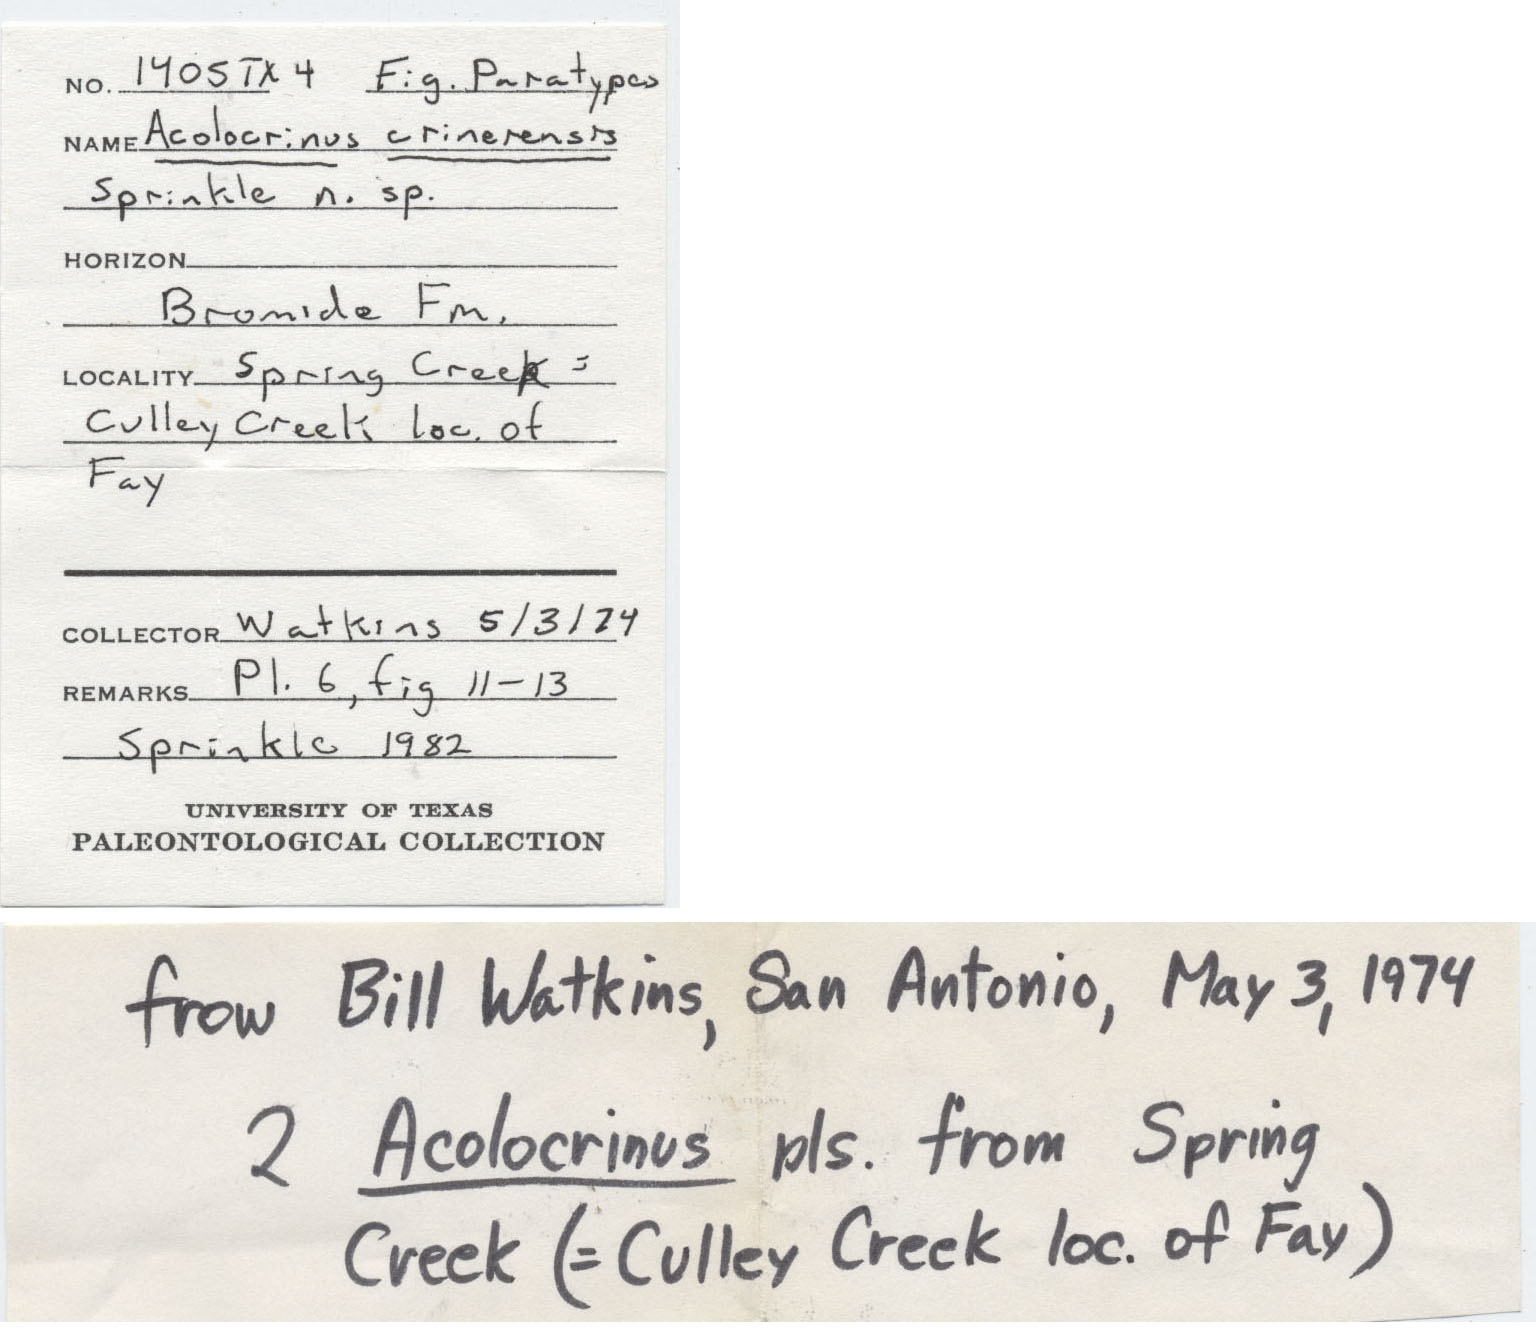 NO. 1405TX4 Fig. Paratypes
NAME Acolocrinus crinerensis
Sprinkle n. sp.
HORIZON
Bromide Fm.
LOCALITY Spring Creek =
Culley Creek loc. of
Fay
COLLECTOR Watkins 5/3/74
REMARKS Pl. 6, fig 11-13
Sprinkle 1982
UNIVERSITY OF TEXAS
PALEONTOLOGICAL COLLECTION
from Bill Watkins, San Antonio, May 3, 1974
2 Acolocrinus pls. from Spring
Creek (= Culley Creek loc. of Fay)